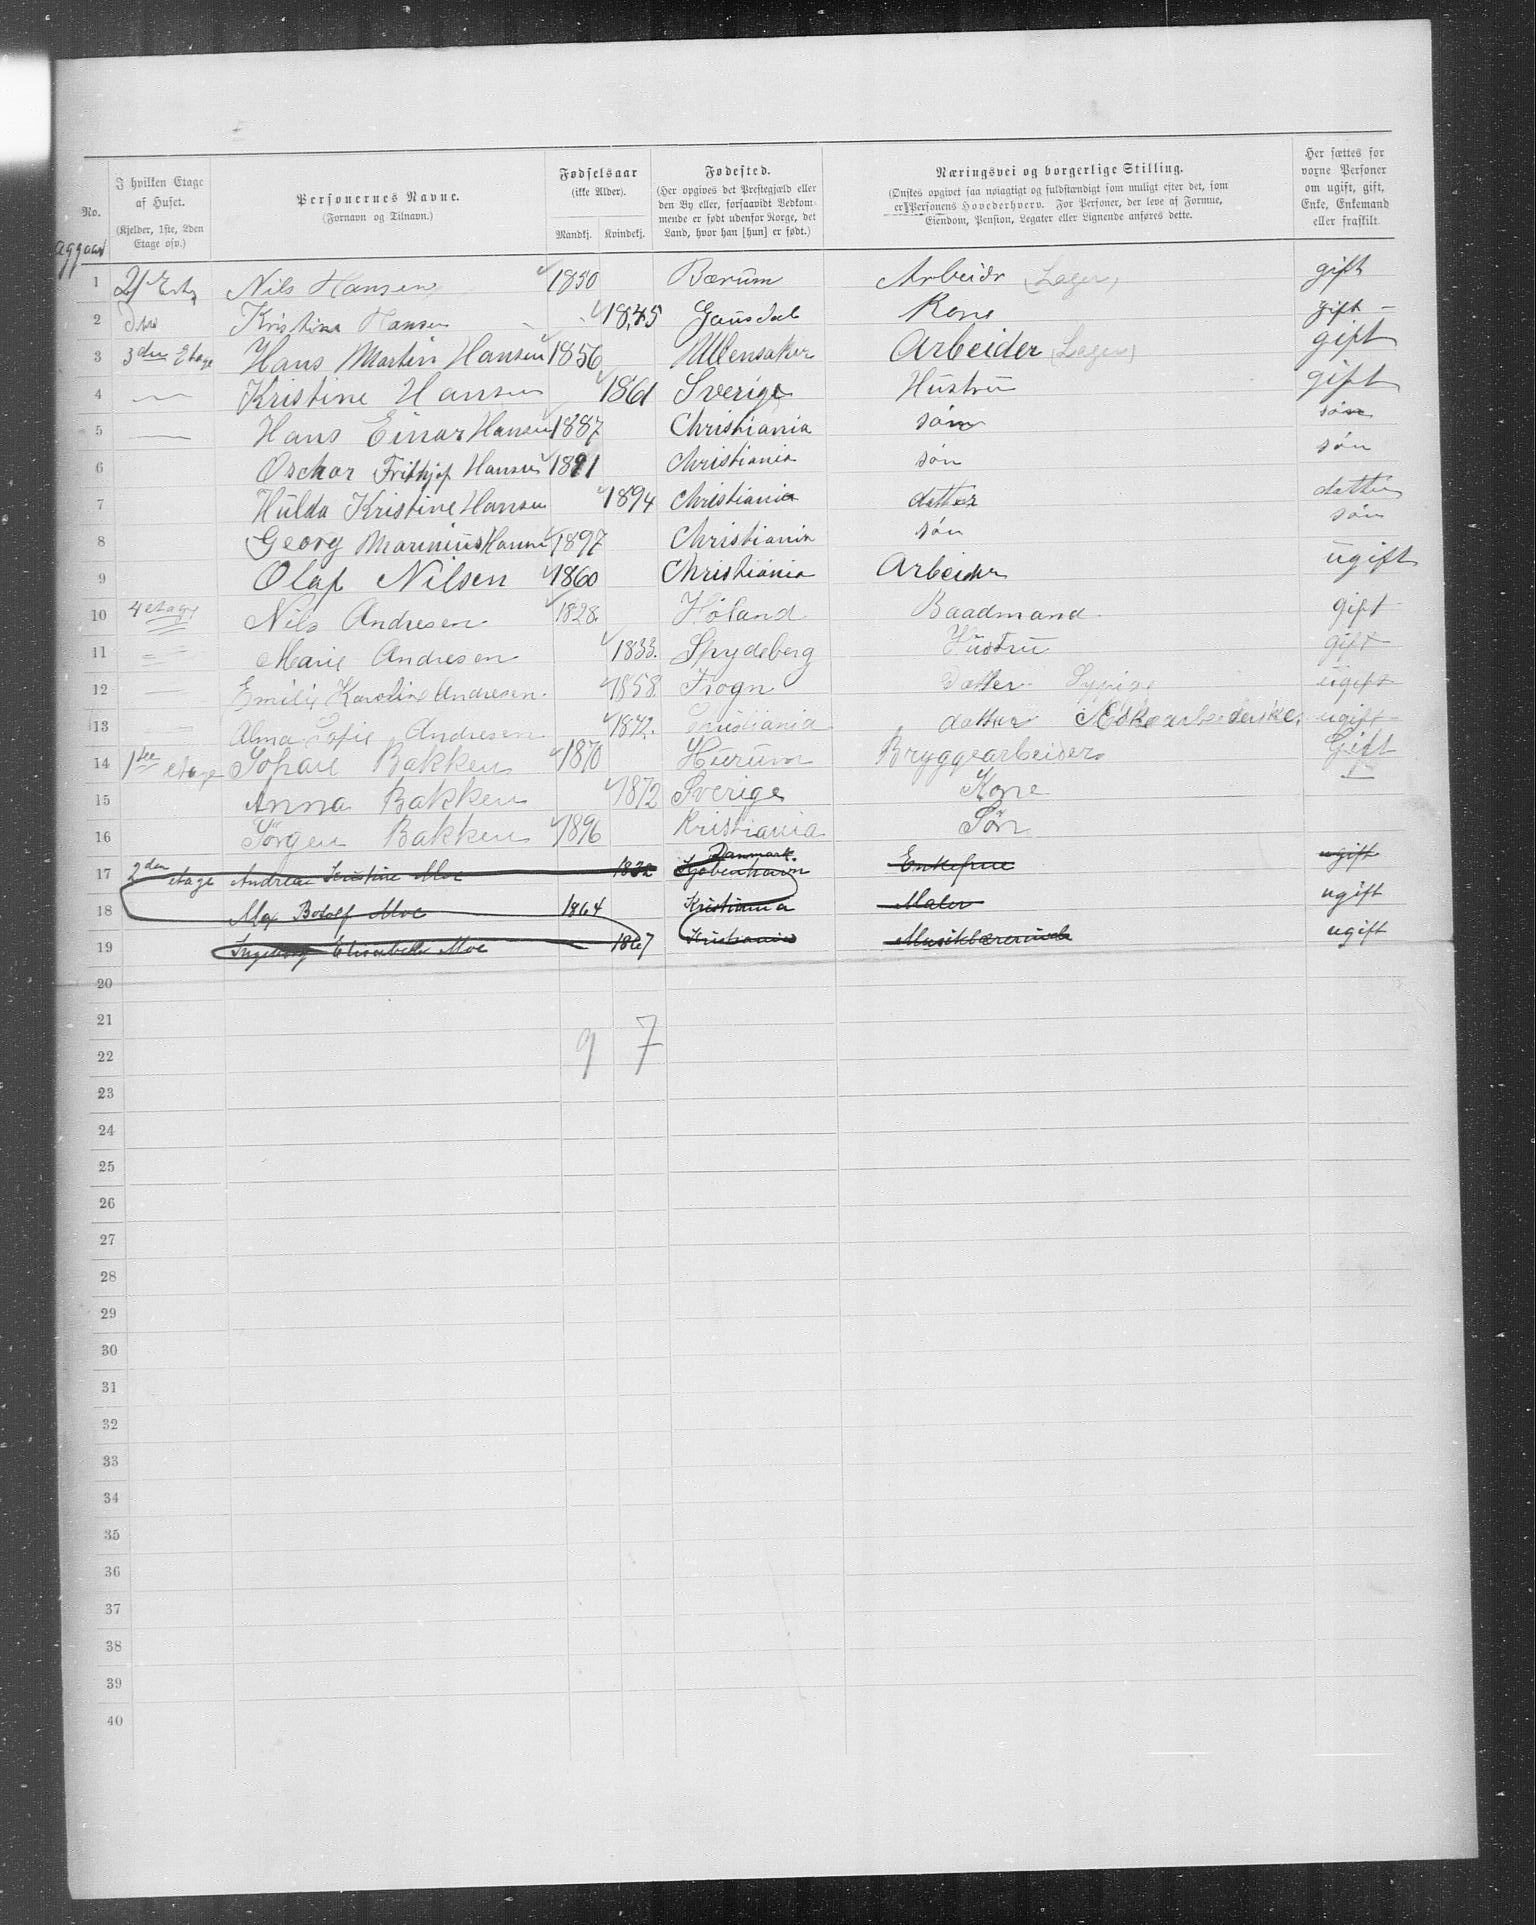 No.
I hvilken Etage af Huset.
(Kjelder, 1ste, 2den Etage osv.)
Personernes Navne.
(Fornavn og Tilnavn.)
Fødselsaar
(ikke Alder).
Mandkj. Kvindekj.
Fødested.
(Her opgives det Præstegjæld eller den By eller, forsaavidt Vedkommende er født udenfor Norge, det Land, hvor han [hun] er født.)
Næringsvei og borgerlige Stilling.
(Ønskes opgivet saa nøiagtigt og fuldstændigt som muligt efter det, som er Personens Hovederhverv. For Personer, der leve af Formue, Eiendom, Pension, Legater eller Lignende anføres dette.
Her sættes for voxne Personer om ugift, gift, Enke, Enkemand eller fraskilt.
1 Nils Hansen 1850 Bærum Arbeidr (Lager) gift
2 Kristine Hansen 1845 Gausdal Kone gift
3 3die Etage Hans Martin Hansen 1856 Ullensaker Arbeider (Lager) gift
4 Kristine Hansen 1861 Sverige Hustru gift
5 Hans Einar Hansen 1887 Christiania søn søn
6 Oschar Frithjof Hansen 1891 Christiania søn søn
7 Hulda Kristine Hansen 1894 Christiania datter datter
8 Georg Marinius Hansen 1897 Christiania søn søn
9 Olaf Nilsen 1860 Christiania Arbeider ugift
10 4 etage Nils Andresen 1828. Høland Baadmand gift
11 Marie Andresen 1833. Spydeberg Hustru gift
12 Emilie Karoline Andresen. 1858 Frogn Datter Sypige ugift
13 Alma Sofie Andresen 1872. Cristiania datter Æskearbeiderske. ugift
14 1ste etage Johan Bakken 1870 Hurum Bryggearbeider Gift
15 Anna Bakken 1872 Sverige Kone
16 Jørgen Bakken 1896 Kristiania Søn
17 2den etage Andrea Kristine Moe 1832 Kjøbenhavn Danmark. Enkefrue ugift
18 Max Bodolf Moe 1864 Kristiania Maler ugift
19 Ingeborg Elisabeth Moe 1867 Kristiania Musiklærerinde ugift
20
21
9 7
22
23
24
25
26
27
28
29
30
31
32
33
34
35
36
37
38
39
40